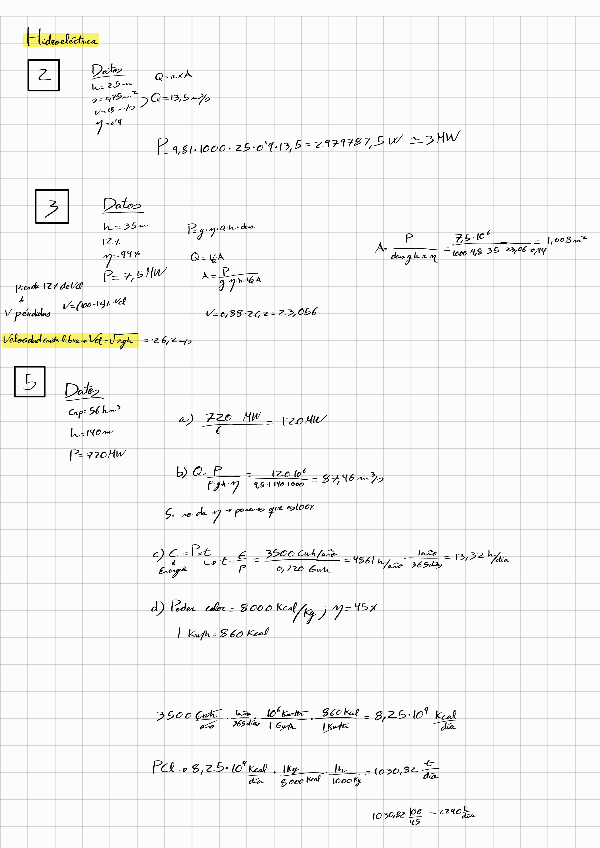 Hidroeléctrica
2
Datos
h = 25 m
v = 18 m/s
Q = v × A
Q = 13,5 m³/s
P = 9,81 · 1000 · 25 · 0'9 · 13,5 = 2979787,5 W ≃ 3 MW
3
Datos
h = 35 m
12%
η = 94%
P = 7,5 MW
P = g · η · Q · h · den
A = P / den g h v η = 7,5 · 10⁶ / 1000 9,8 35 23,06 0,94 = 1,008 m²
Pierde 12% de Vel
V pérdidas
V = (100-12)% · Vcl
V = 0,88 · 26,2 = 23,056
Velocidad caída libre → Vcl = √2gh = 26,2 m/s
5
Datos
Cap = 56 hm³
h = 140 m
P = 720 MW
a) 720 MW / 6 = 120 MW
b) Q = P / ρ g h · η = 120 · 10⁶ / 9,81 · 140 · 1000 = 87,46 m³/s
Si no da η → ponemos que es 100%
c) E = P × t
Energía
t = E / P = 3500 Gwh/año / 0,720 Gwh = 4861 h/año · 1 año / 365 días = 13,32 h/día
d) Poder calor = 8000 Kcal/Kg ; η = 45%
1 Kwh = 860 Kcal
3500 Gwh / año · 1 año / 365 días · 10⁶ Kwh / 1 Gwh · 860 Kcal / 1 Kwh = 8,25 · 10⁹ Kcal / día
PCI → 8,25 · 10⁹ Kcal / día · 1 Kg / 8000 Kcal · 1 t / 1000 Kg = 1030,82 t / día
1030,82 100 / 45 = 2290 t / día